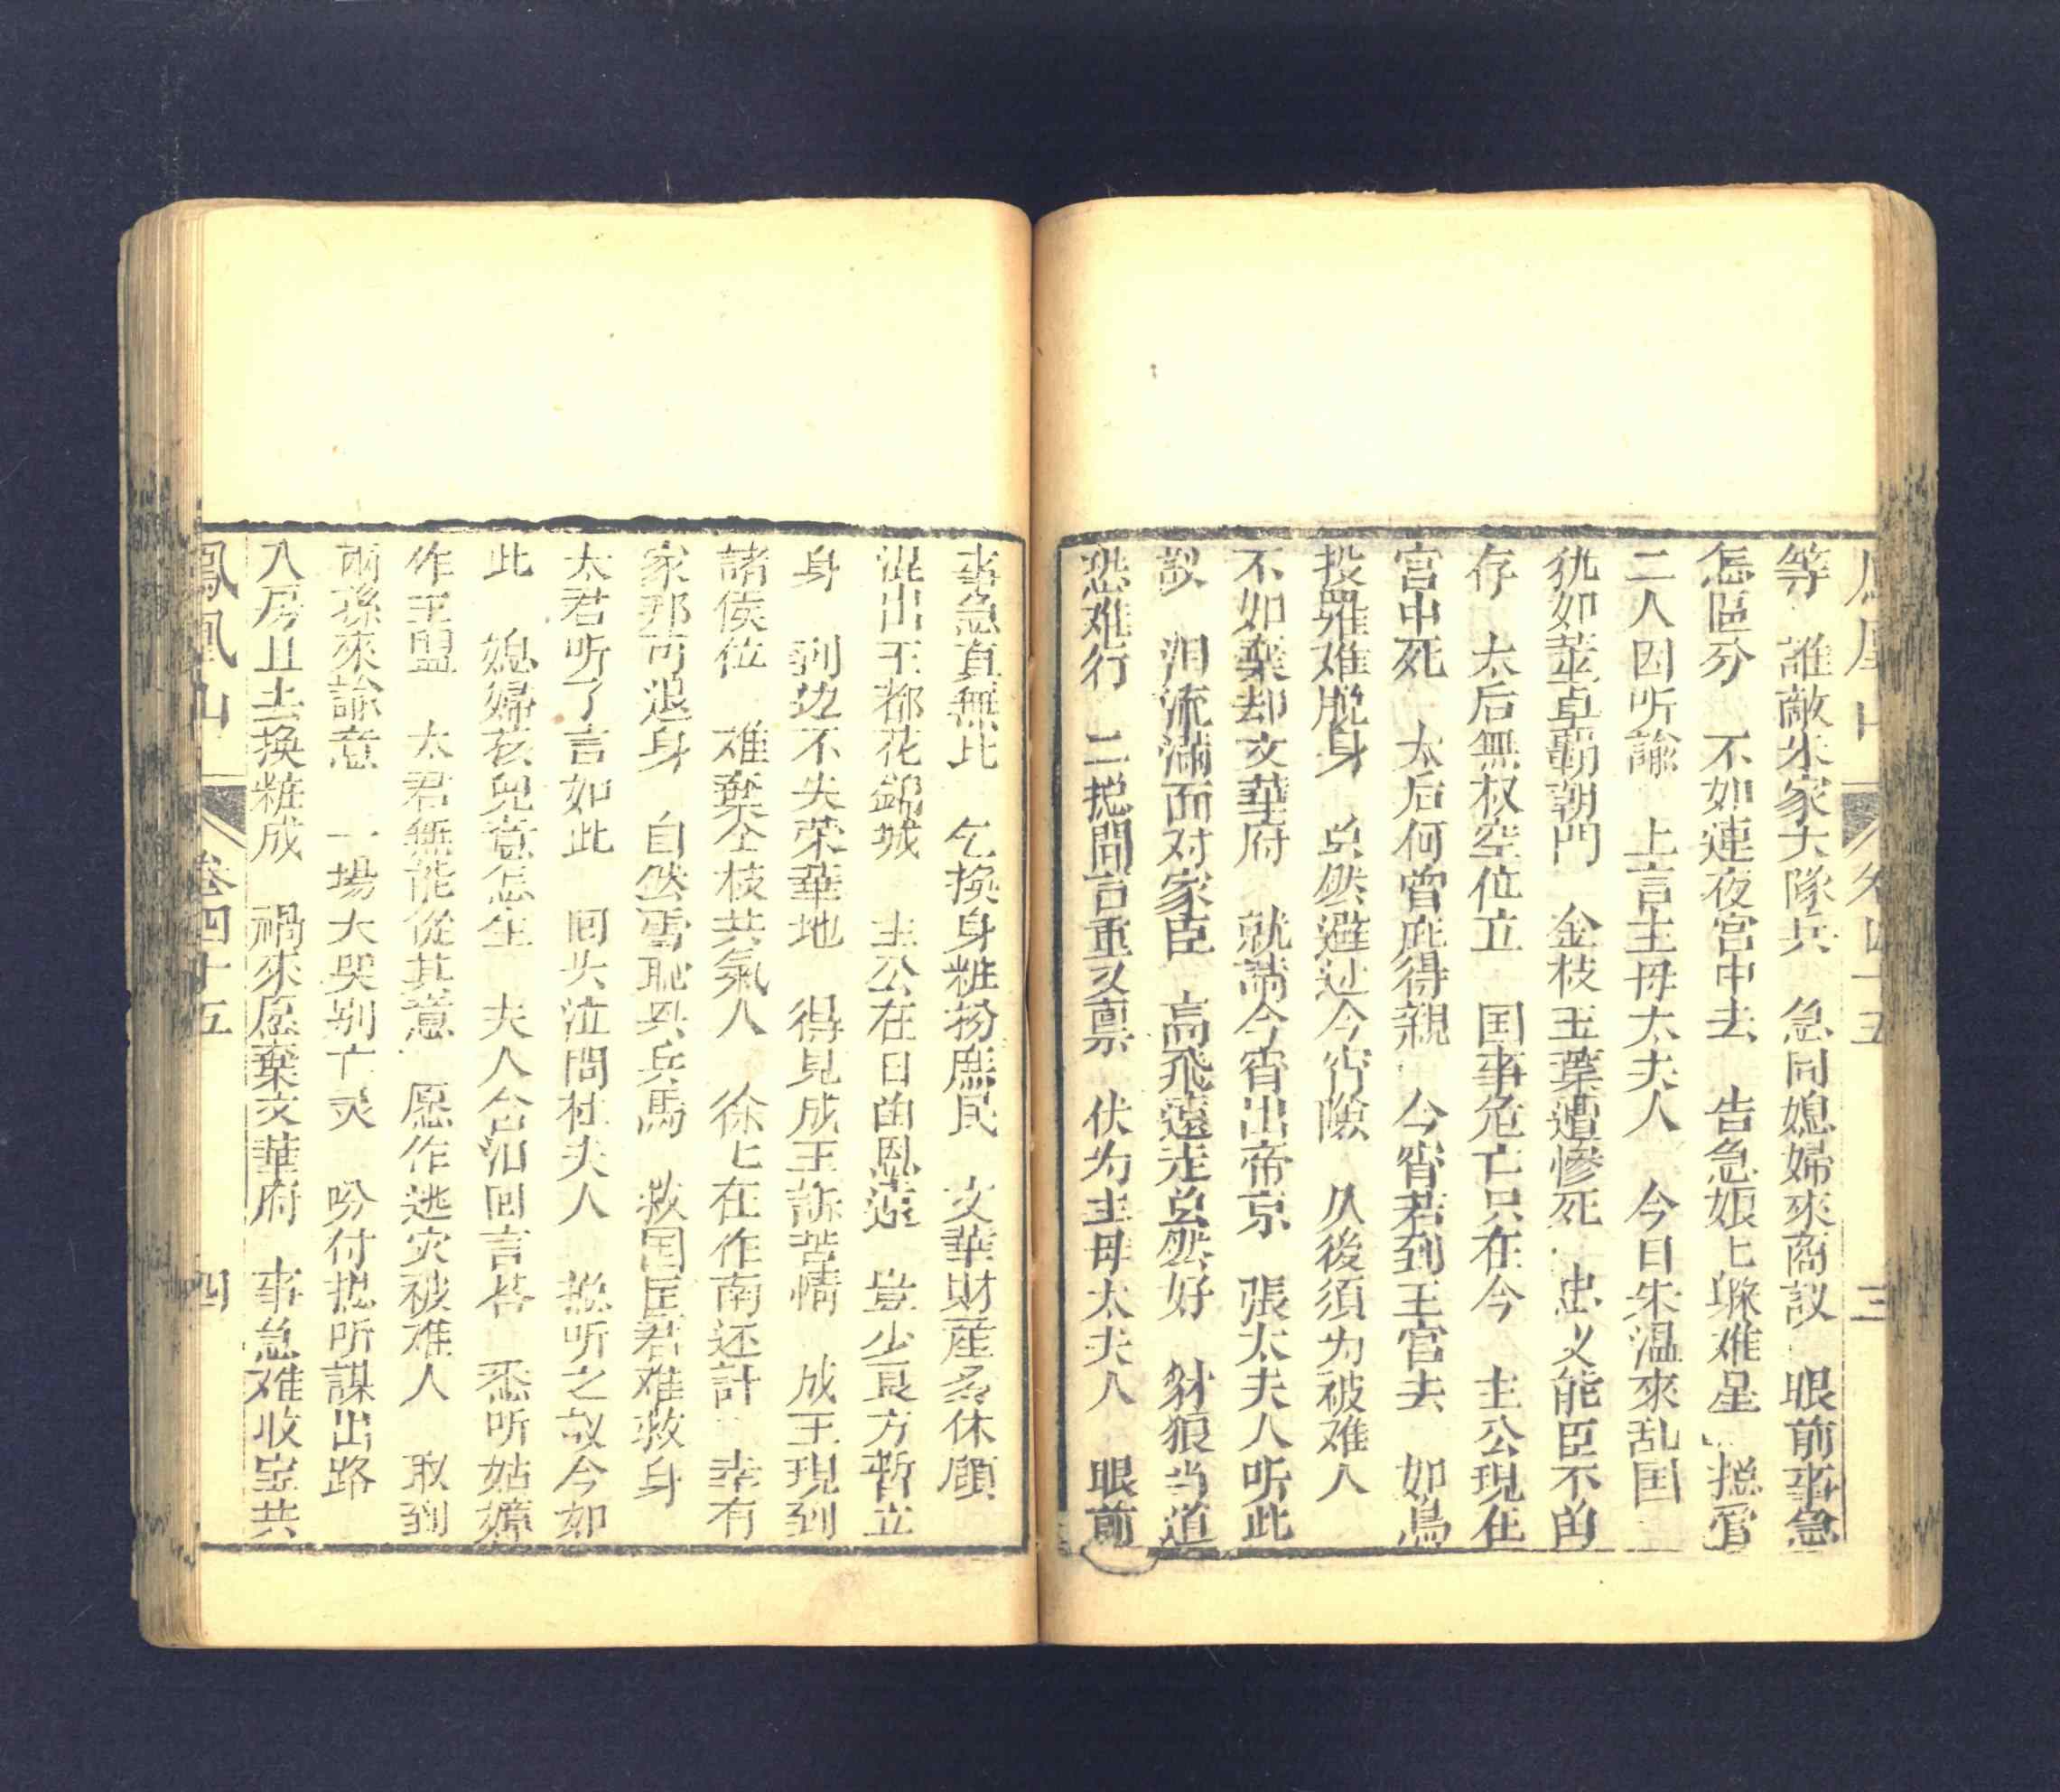 鳳凰山 卷四十五 三
等 誰敵朱家大隊兵 急同媳婦來商议 眼前事急
怎區分 不如連夜宮中去 告急娘匕躲难星 捴管
二人因听諭 上言主母太夫人 今日朱温來乱囯
犹如董卓霸朝門 金枝玉葉遭慘死 忠义能臣不的
存 太后無权空位立 囯事危亡只在今 主公現在
宮中死 太后何曾庇得親 今宵若到王宫去 如鳥
投羅难脱身 总然避过今宵險 久後須为被难人
不如棄却文華府 就請今宵出帝京 張太夫人听此
説 泪流滿面对家臣 高飛遠走总然好 豺狼当道
恐难行 二捴問言重又禀 伏为主母太夫人 眼前
事急真無比 乞換身粧扮庶民 文華財産多休顧
混出王都花錦城 主公在日的恩遠 豈少良方暫立
身 到边不失荣華地 得見成王訴苦情 成王現到
諸侯位 难棄仝枝共氣人 徐匕在作南还計 幸有
家邦可退身 自然雪恥兴兵馬 救国匡君难救身
太君听了言如此 囬头泣問杜夫人 捴听之议今如
此 媳婦孩兒意怎生 夫人含泪囬言荅 悉听姑嬤
作主盟 太君無能從其意 愿作逃灾被难人 取到
兩孫來諭意 一場大哭别亡灵 吩付捴所謀出路
入房且去換粧成 禍來愿棄文華府 事急难收宝共
鳳凰山 卷四十五 四